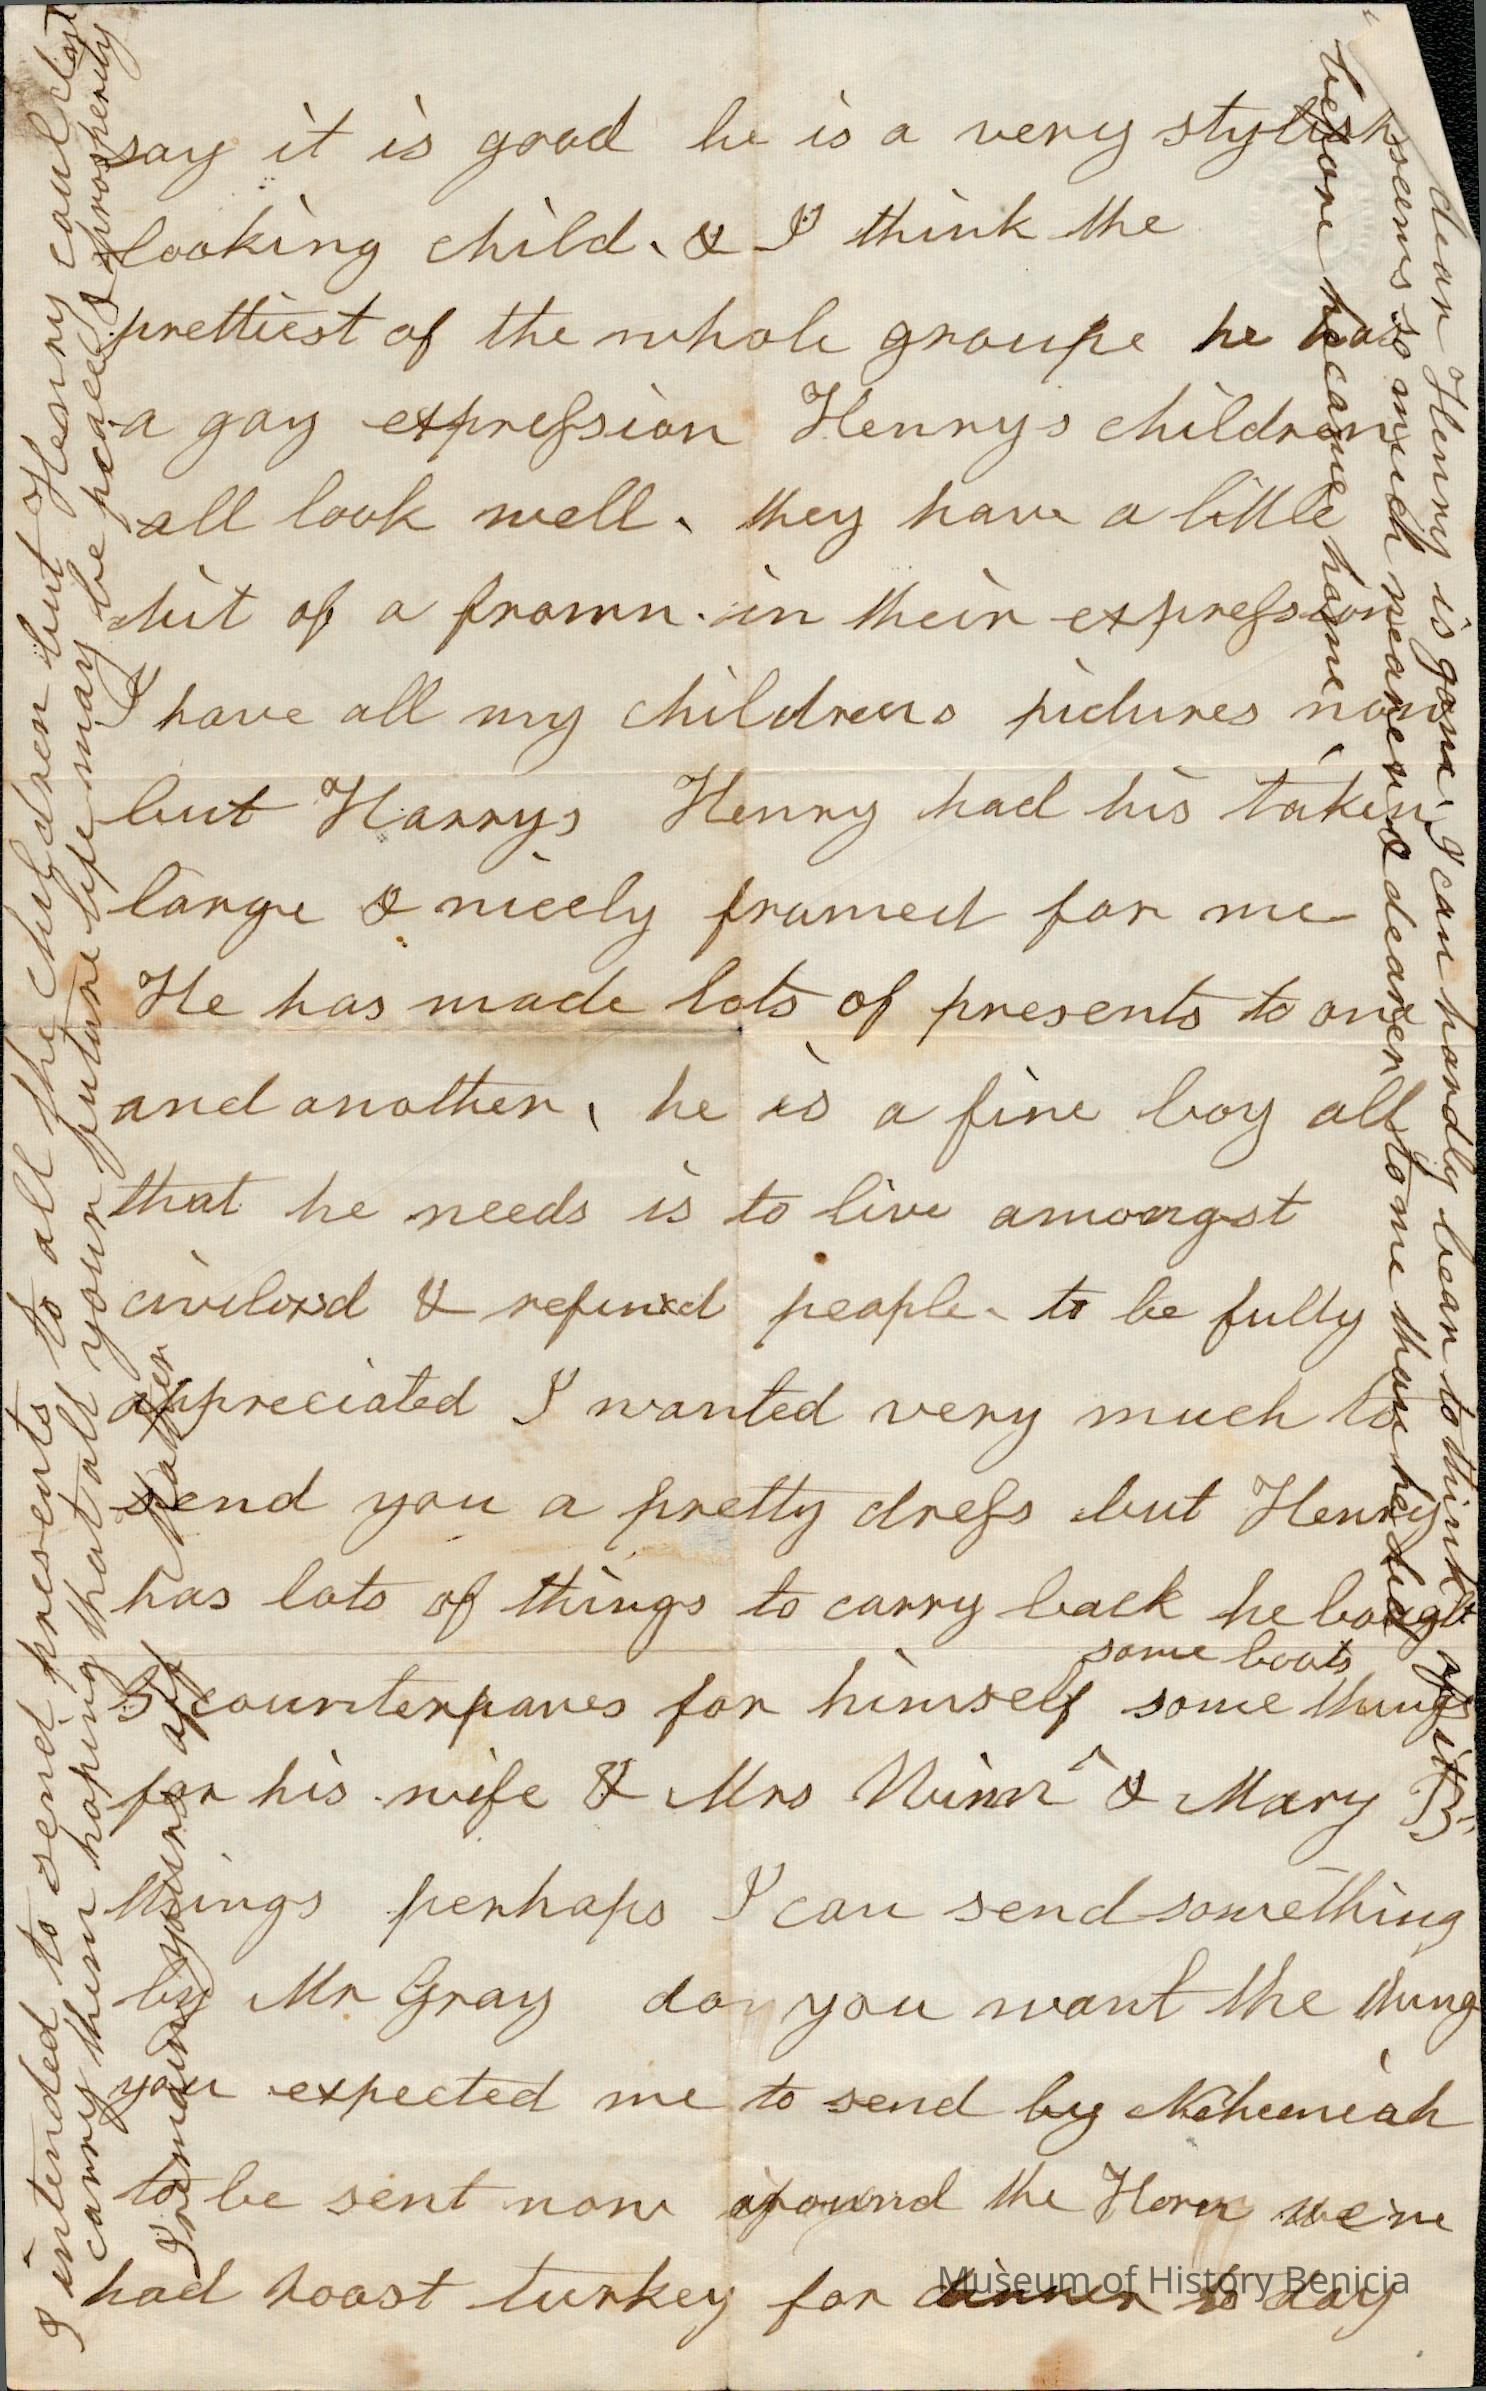 say it is good he is a very stylish
looking child. & I think the
prettiest of the whole groupe he has
a gay expression Henrys children
all look well. they have a little
bit of a frown in their expression
I have all my childrens pictures now
but Harrys Henry had his taken
large & nicely framed for me
He has made lots of presents to one
and another, he is a fine boy all
that he needs is to live amongst
& refined people to be fully
appreciated I wanted very much to
send you a pretty dress but Henry
has lots of things to carry back he
some boots
counterpanes for himself some things
for his wife & Mrs & Mary B's
things perhaps I can send something
by Mr Gray do you want the thing
you expected me to send by Nehemiah
to be sent now around the Horn we
had roast turkey for dinner to day
I intended to send presents to all the children but Henry coul dnt
carry them hoping that all your future life may be peace & prosperity
I remain yours aff Mother
dear Henry is gone. I can hardly bear to think of it
seems so much nearer & dearer to me than he did
before he came home
Museum of History Benicia